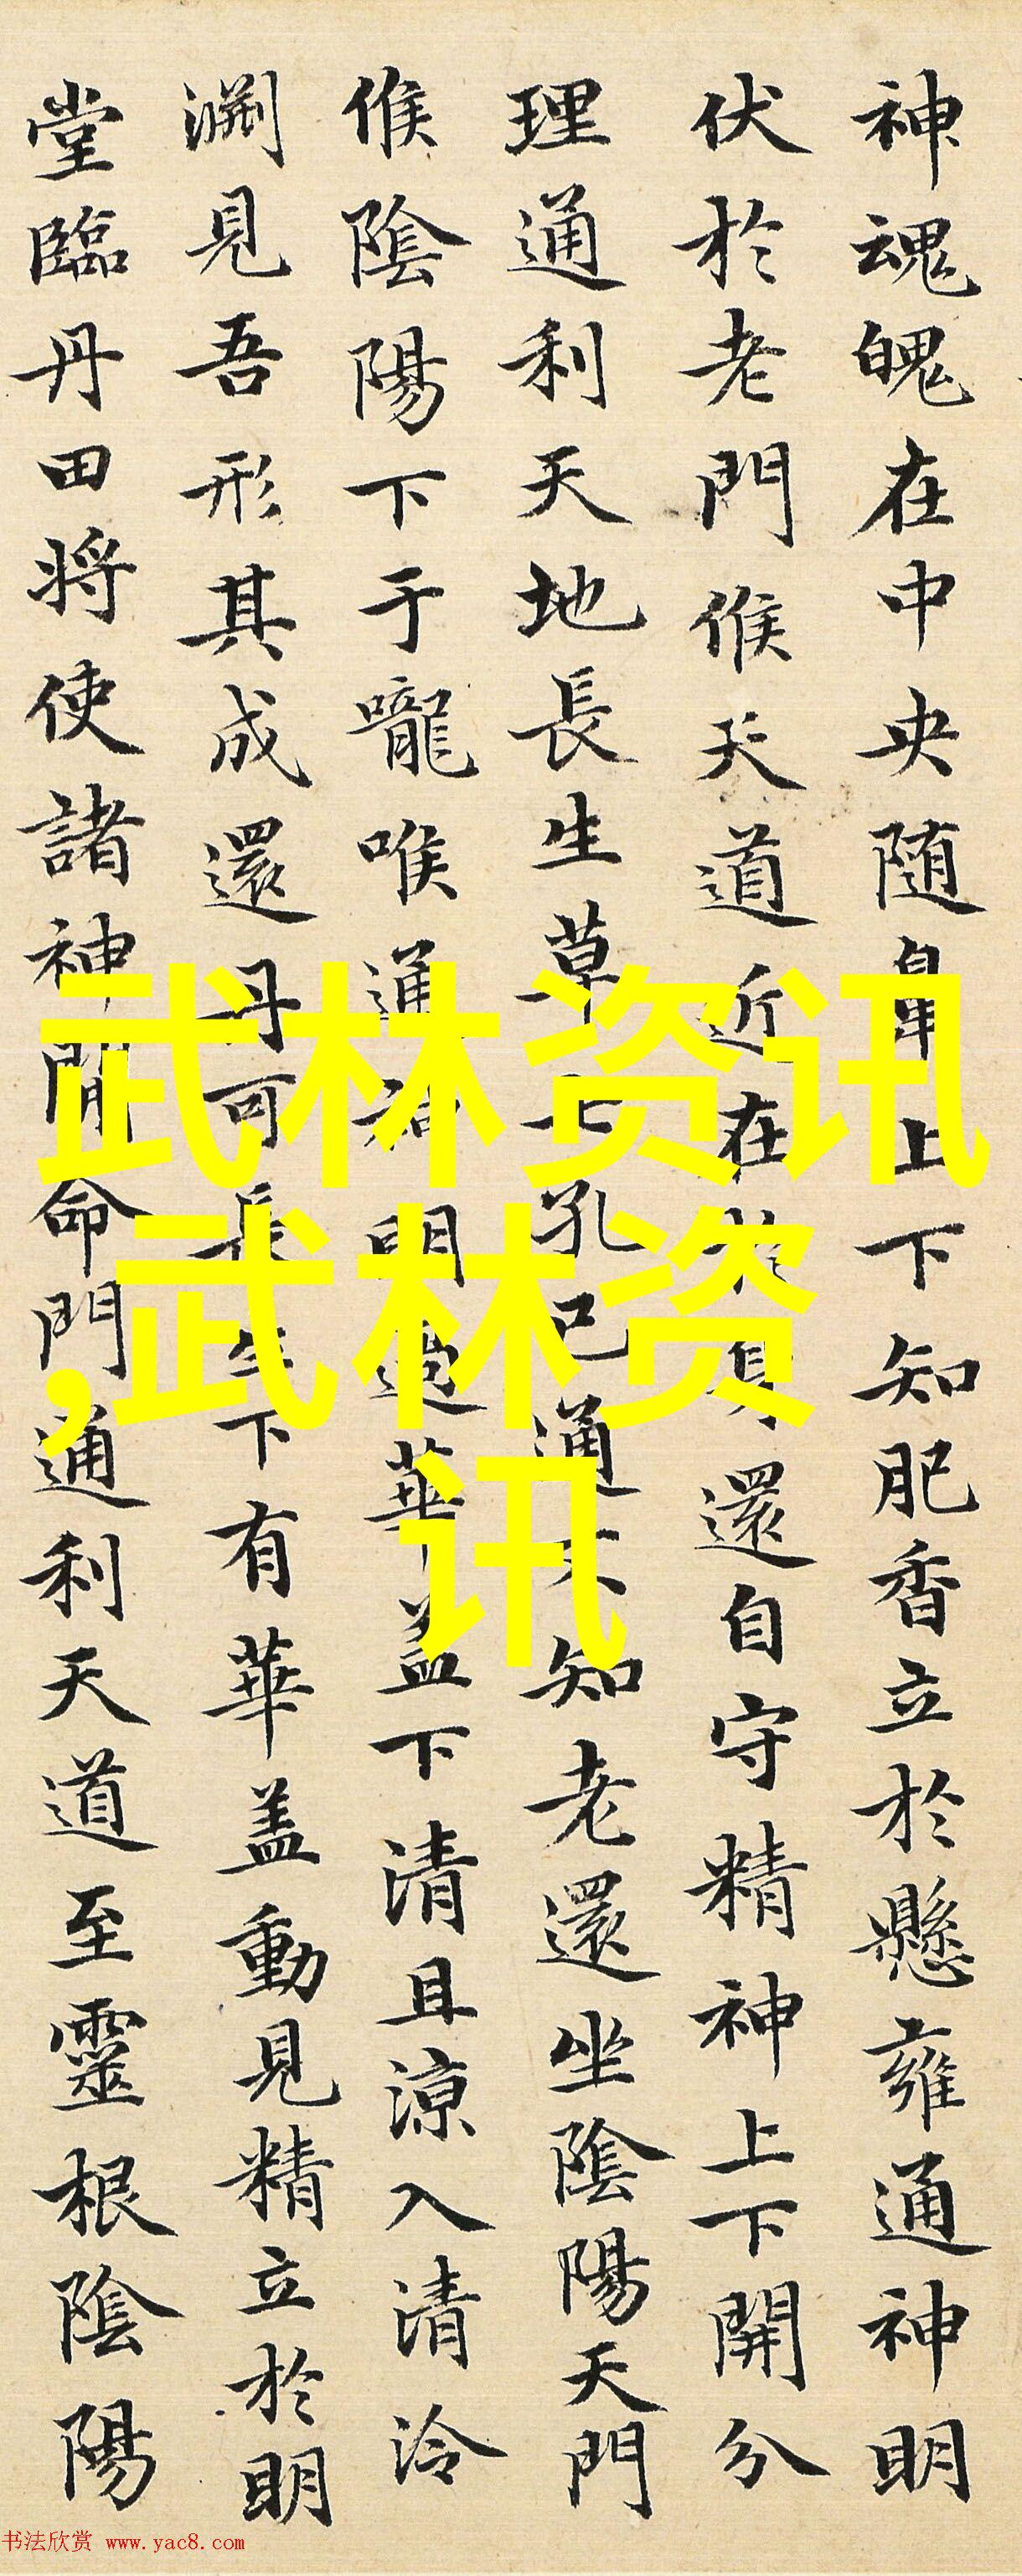 神魂魄在中央随鼻上下知肥香立於懸雍通神明
伏於老門候天道近在於身還自守精神上下開分
理通利天地長生草七孔已通不知老還坐陰陽天門
候陰陽下于嚨喉通神明過華蓋下清且涼入清泠
淵見吾形其成還丹可長生下有華蓋動見精立於明
堂臨丹田将使諸神開命門通利天道至靈根陰陽
武林资讯
,武林资
讯
书法欣赏 www.yac8.com